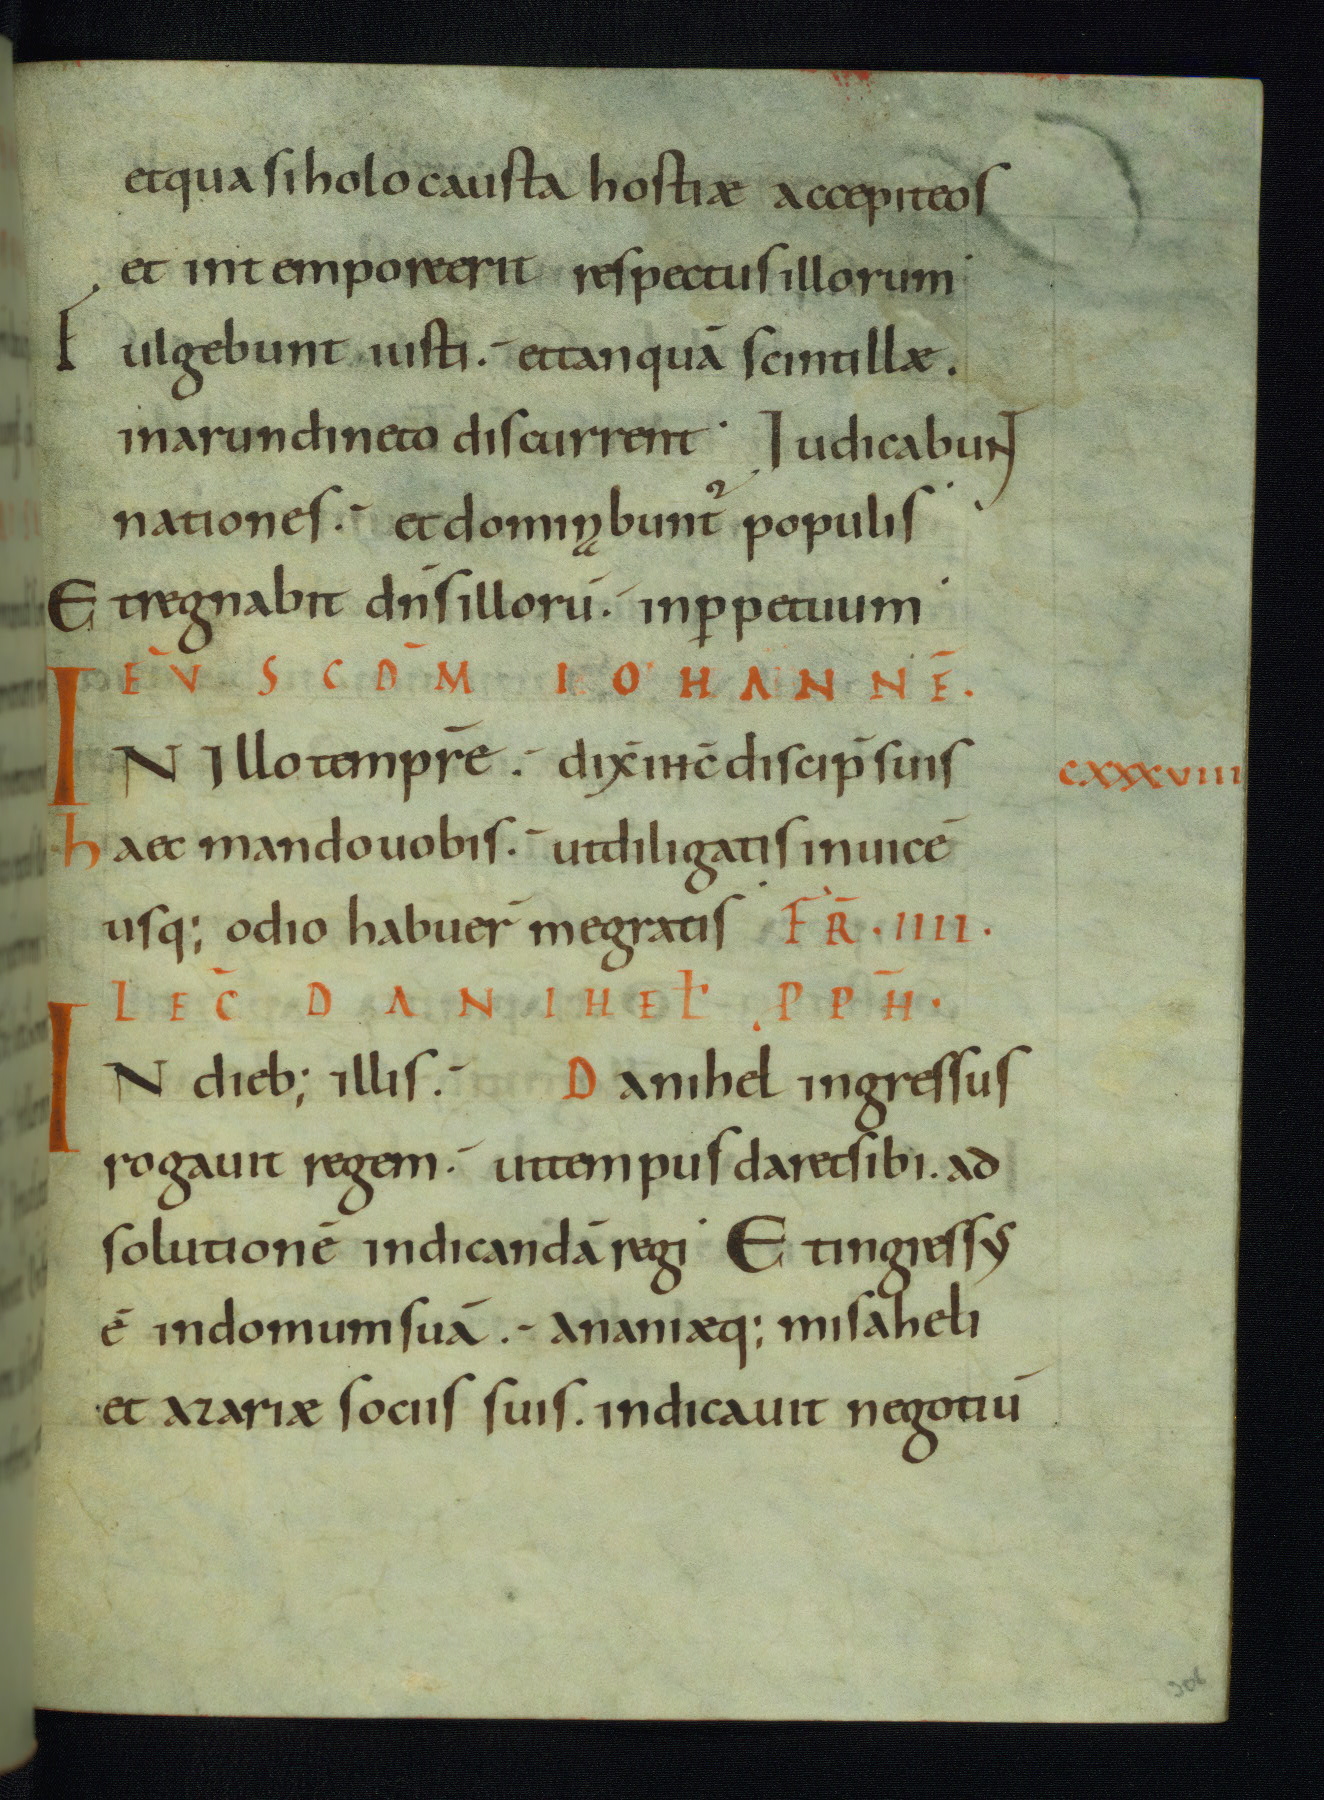 et quasi holocausta hostiæ accepit eos
et in tempore erit respectus illorum
Fulgebunt iusti.- et tanquā scintillæ.
in arundineto discurrent· Iudicabunt
nationes.- et dominabunt᷑ populis
Et regnabit dn̄s illorū.- in ꝑpetuum
EV̄ SCDM̄ IOHANNĒ.
IN Illo tempr̄e.- dix̄ ih̄c discip̄ suis
CXXXVIIII
haec mando uobis.- ut diligatis inuicē
usq; odio habuer̄ me gratis FR̄.IIII.
LEC̄ DANIHEL PPH̄.
IN dieb; illis.- Danihel ingressus
rogauit regem.- ut tempus daret sibi. ad
solutionē indicandā regi Et ingressus
ē in domum suā.- ananiæq; misaheli
et azariæ sociis suis. indicauit negotiū
306